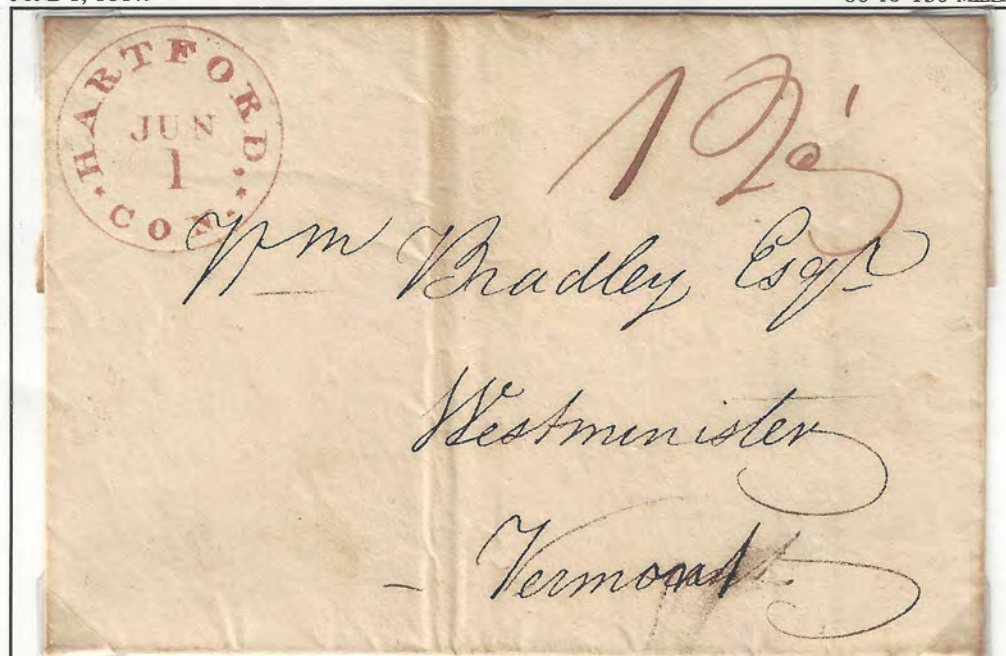 HARTFORD. CON.
JUN
1
12½
Wm Bradley Esqr
Westminister
Vermont